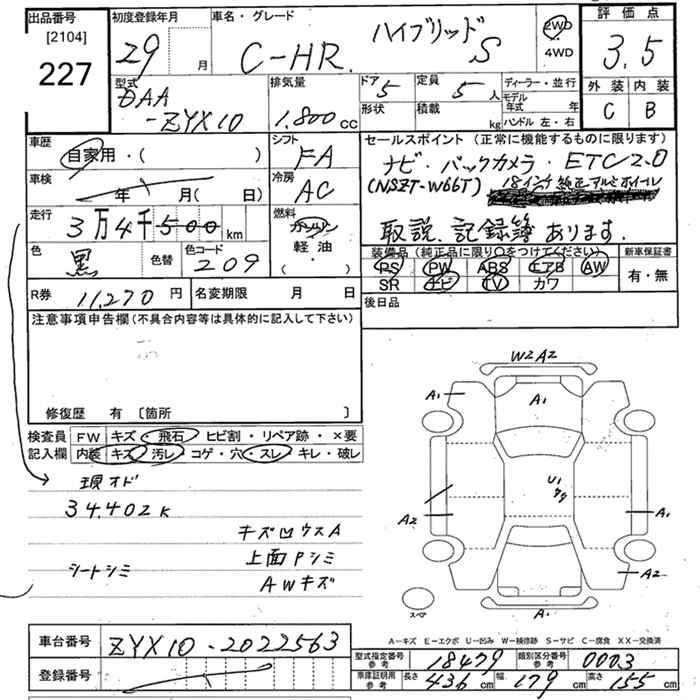 出品番号
[2104]
227
初度登録年月
29 月
車名・グレード
C-HR ハイブリッド S
2WD
4WD
評価点
3.5
外装 内装
C B
型式
DAA
-ZYX10
排気量
1.800cc
ドア 5
形状
定員 5人
積載 kg
ディーラー・並行
モデル年式 年
ハンドル 左・右
車歴
自家用・( )
シフト
FA
セールスポイント (正常に機能するものに限ります)
ナビ・バックカメラ・ETC2.0
(NSZT-W66T) 18インチ純正アルミホイール
取説、記録簿あります。
車検
年 月( 日)
冷房
AC
走行
3万4千500km
燃料
ガソリン
軽油
( )
色
黒 色替
色コード
209
装備品 (純正品に限り○をつけてください)
PS PW ABS エアB AW
SR ナビ TV カワ
新車保証書
有・無
R券 11,270円
名変期限 月 日
後日品
注意事項申告欄(不具合内容等は具体的に記入して下さい)
修復歴 有 〔箇所 〕
検査員 FW キズ・飛石 ヒビ割・リペア跡・×要
記入欄 内装 キズ 汚レ コゲ・穴・スレ・キレ・破レ
現オド
34,402K
キズ凹ウスA
上面Pシミ
シートシミ
AWキズ
W2A2
A1
A1
U1
A2
A1
A2
A1
スペア
A-キズ E-エクボ U-凹み W-補修跡 S-サビ C-腐食 XX-交換済
車台番号 ZYX10-2022563
登録番号
型式指定番号 参考 18479
類別区分番号 参考 0003
車庫証明用 参考 長さ 436cm 幅 179cm 高さ 155cm